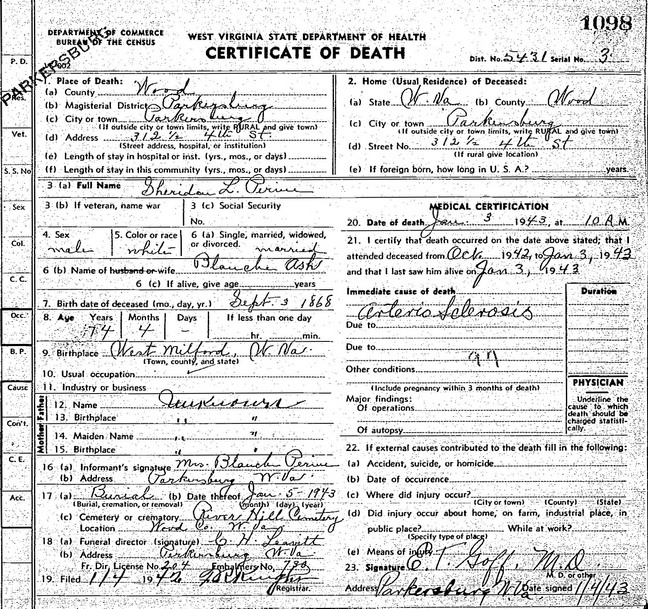 1098
DEPARTMENT OF COMMERCE
BUREAU OF THE CENSUS
WEST VIRGINIA STATE DEPARTMENT OF HEALTH
CERTIFICATE OF DEATH
Dist. No. 5431 Serial No. 3
PARKERSBURG
1. Place of Death:
(a) County Wood
(b) Magisterial District Parkersburg
(c) City or town Parkersburg
(If outside city or town limits, write RURAL and give town)
(d) Address 312 1/2 4th St
(Street address, hospital, or institution)
(e) Length of stay in hospital or inst. (yrs., mos., or days)
(f) Length of stay in this community (yrs., mos., or days)
2. Home (Usual Residence) of Deceased:
(a) State W. Va (b) County Wood
(c) City or town Parkersburg
(If outside city or town limits, write RURAL and give town)
(d) Street No. 312 1/2 4th St
(If rural give location)
(e) If foreign born, how long in U. S. A.? years.
3 (a) Full Name Sheridan L. Perine
3 (b) If veteran, name war
3 (c) Social Security
No.
4. Sex
male
5. Color or race
white
6 (a) Single, married, widowed,
or divorced. married
6 (b) Name of husband or wife Blanche Ash
6 (c) If alive, give age years
7. Birth date of deceased (mo., day, yr.) Sept. 3 1868
8. Age Years Months Days If less than one day
74 4 - hr. min.
9. Birthplace West Milford, W. Va.
(Town, county, and state)
10. Usual occupation
11. Industry or business
Father
12. Name Unknown
13. Birthplace " "
Mother
14. Maiden Name " "
15. Birthplace " "
16 (a) Informant's signature Mrs. Blanch Perine
(b) Address Parkersburg W. Va
17 (a) Burial (b) Date thereof Jan. 5 - 1943
(Burial, cremation, or removal) (month) (day) (year)
(c) Cemetery or crematory River Hill Cemetery
Location Wood Co. W. Va
18 (a) Funeral director (signature) C. H. Leavitt
(b) Address Parkersburg W. Va
Fr. Dir. License No. 204 Embalmers No.
19. Filed 1/4 1942
Registrar.
MEDICAL CERTIFICATION
20. Date of death Jan. 3 1943, at 10 A.M.
21. I certify that death occurred on the date above stated; that I
attended deceased from Oct. 1942, to Jan 3, 1943
and that I last saw him alive on Jan 3, 1943
Immediate cause of death Duration
Arterio Sclerosis
Due to
Due to
97
Other conditions
(Include pregnancy within 3 months of death)
Major findings:
Of operations
Of autopsy
PHYSICIAN
Underline the cause to which death should be charged statistically.
22. If external causes contributed to the death fill in the following:
(a) Accident, suicide, or homicide
(b) Date of occurrence
(c) Where did injury occur?
(City or town) (County) (State)
(d) Did injury occur about home, on farm, industrial place, in
public place? While at work?
(Specify type of place)
(e) Means of injury
23. Signature P. T. Goff, M.D.
M. D. or other
Address Parkersburg W Va Date signed 1/4/43
P. D.
Res.
Vet.
S. S. No
Sex
Col.
C. C.
Occ.
B. P.
Cause
Con't.
C. E.
Acc.